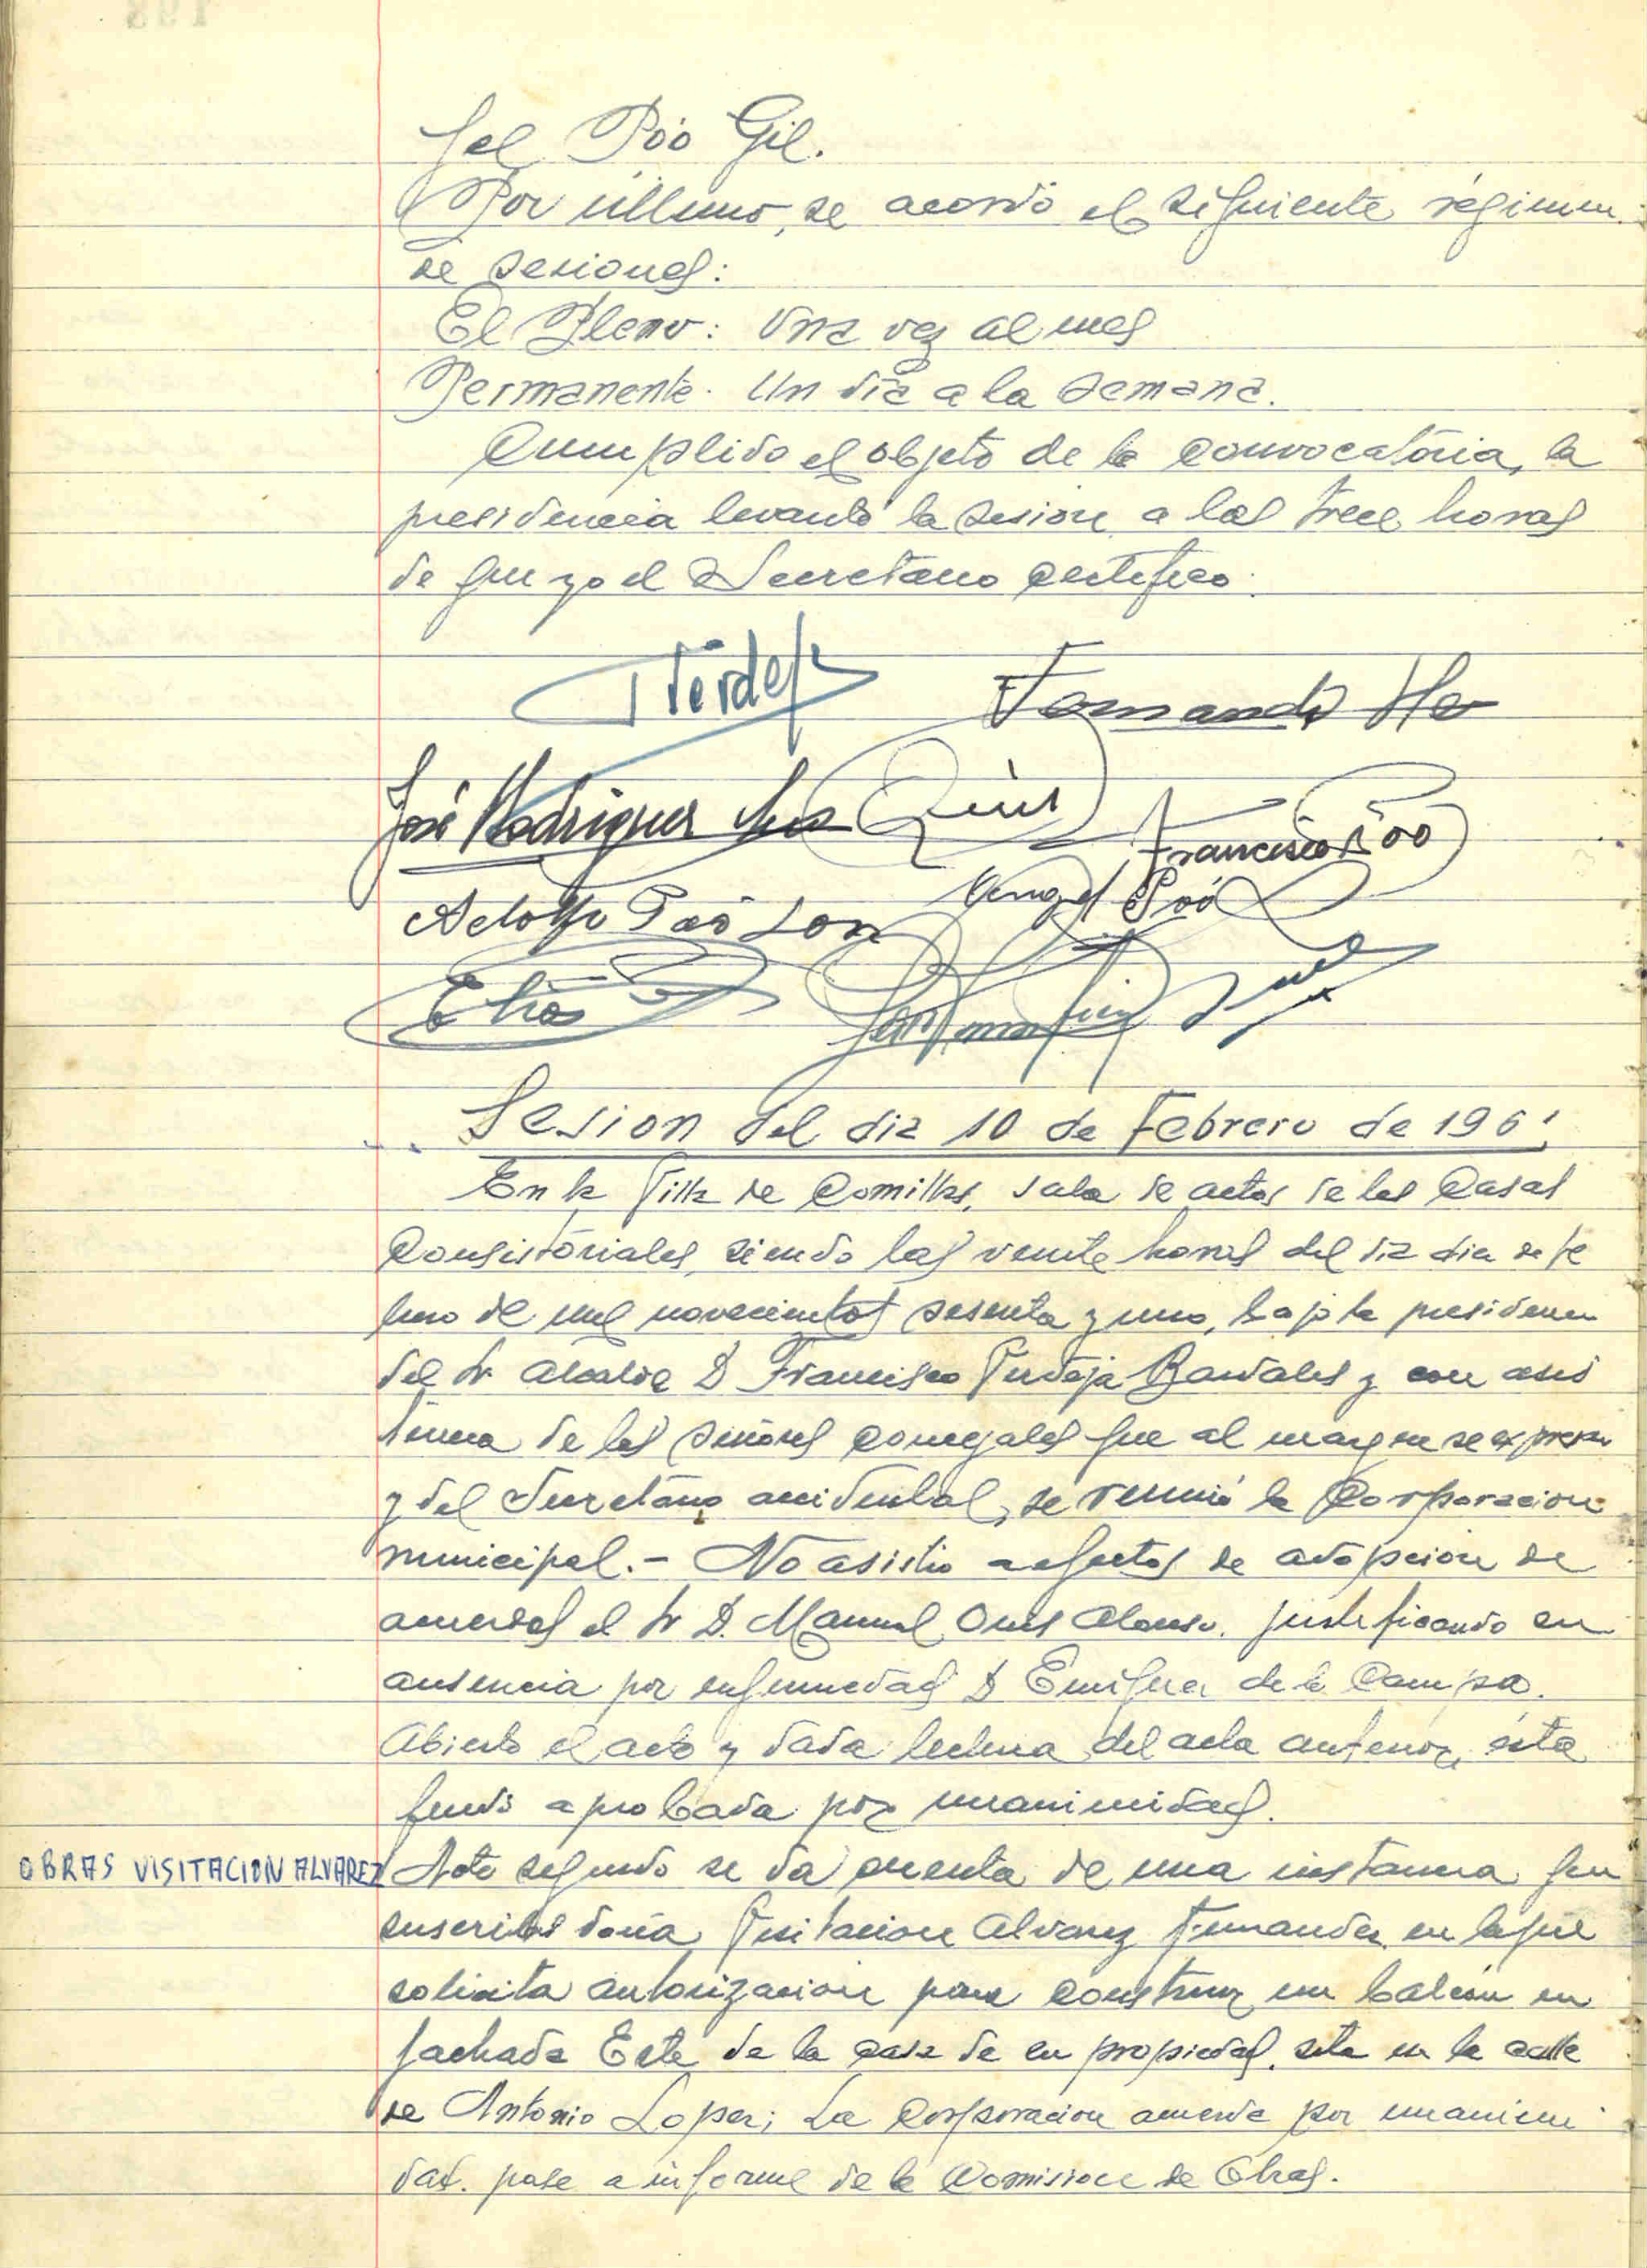 fel Póo Gil.
Por último, se acordó el siguiente régimen
de sesiones:
El Pleno: Una vez al mes
Permanente. Un día a la semana.
Cumplido el objeto de la convocatoria, la
presidencia levantó la sesion a las trece horas
de que yo el Secretario certifico.
Fernando
José Rodriguez
Francisco Póo
Adolfo Póo
Póo
Sesion del dia 10 de Febrero de 1961
En la Villa de Comillas, sala de actos de las Casas
Consistoriales, siendo las veinte horas del dia diez de fe
brero de mil novecientos sesenta y uno, bajo la presidencia
del Sr. Alcalde D Francisco Verdeja Bardales y con asis
tencia de los señores concejales que al margen se expresan
y del Secretario accidental, se reunió la Corporacion
municipal.- No asistio a efectos de adopcion de
acuerdos el Sr D. Manuel Alonso. justificando su
ausencia por enfermedad D de la Campa.
Abierto el acto y dada lectura del acta anterior, ésta
fué aprobada por unanimidad.
OBRAS VISITACION ALVAREZ
Acto seguido se da cuenta de una instancia que
suscribe doña Visitacion Alvarez Fernandez en la que
solicita autorizacion para construir un balcon en
fachada Este de la casa de su propiedad, sita en la calle
de Antonio Lopez; La Corporacion acuerda por unanimi
dad. pase a informe de la Comision de Obras.